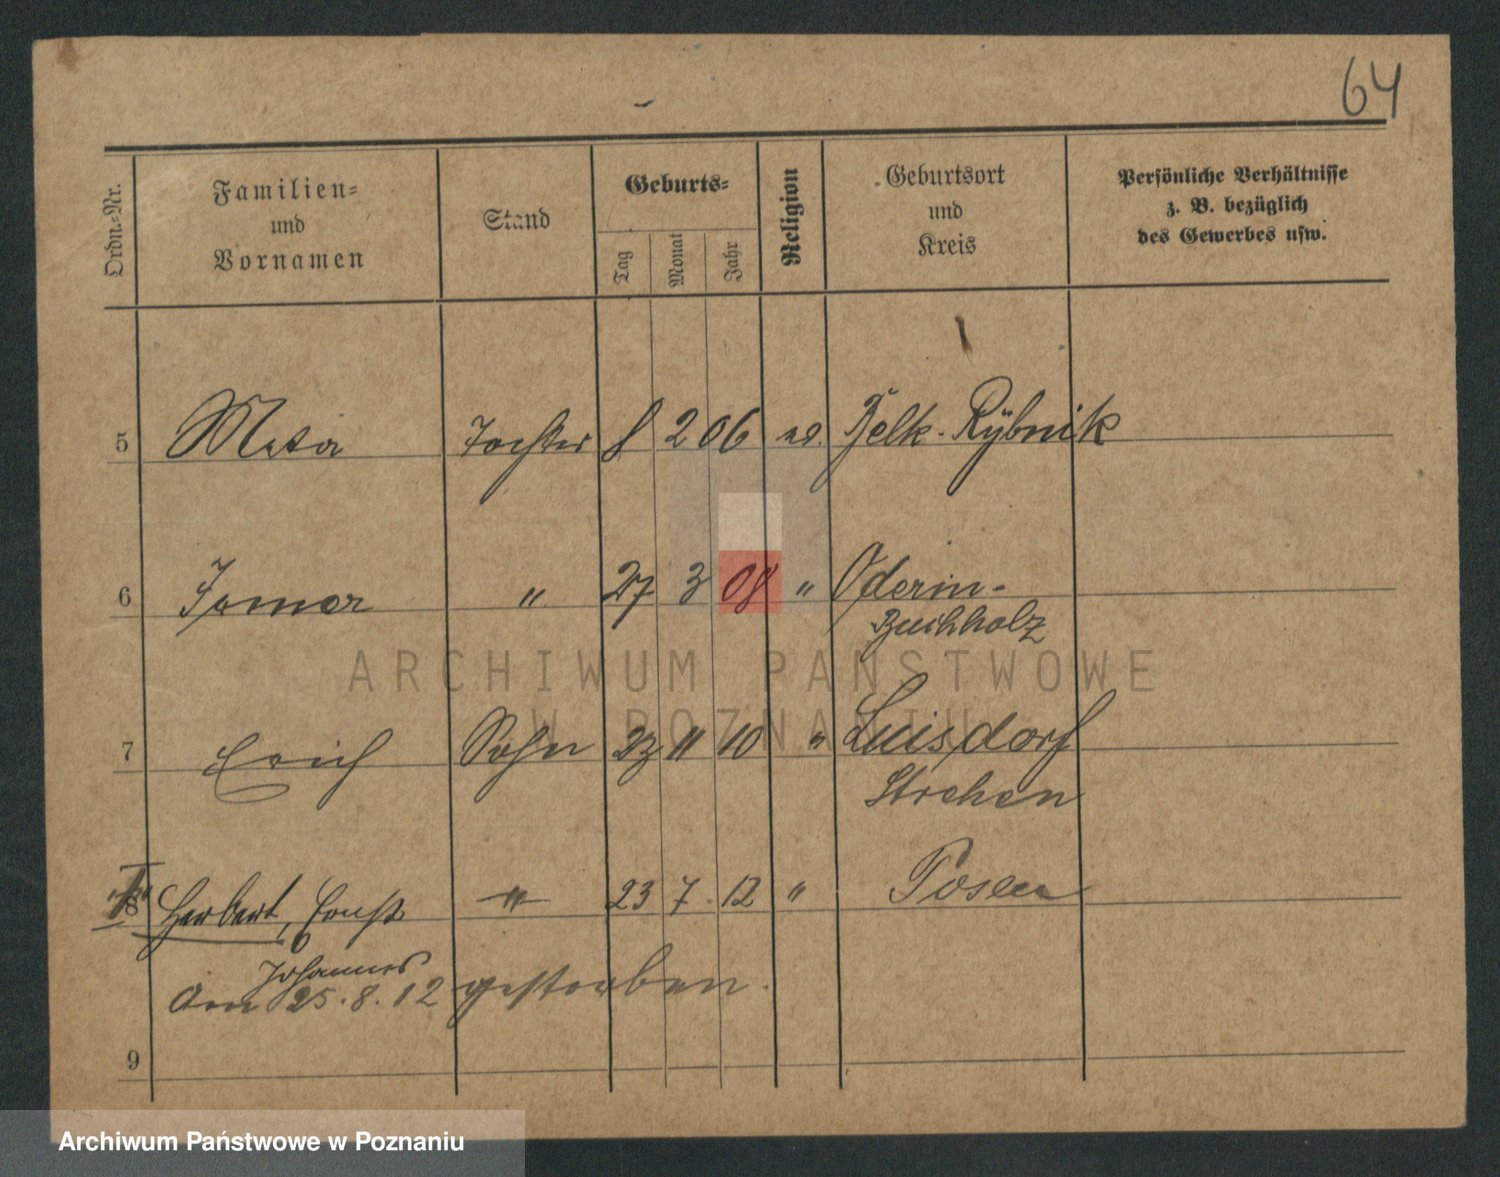 64
Ordn.-Nr.
Familien-
und
Vornamen
Stand
Geburts-
Tag
Monat
Jahr
Religion
Geburtsort
und
Kreis
Persönliche Verhältnisse
z. B. bezüglich
des Gewerbes usw.
5 Meta Tochter 8 2 06 ev. Belk - Rybnik
6 Irmer " 27 3 08 " Oderin-
Buchholz
ARCHIWUM PAŃSTWOWE
W POZNANIU
7 Erich Sohn 23 11 10 " Luisdorf
Strehen
8 Herbert, Ernst " 23 7. 12 " Posen
Johannes
Am 25.8.12 gestorben.
9
Archiwum Państwowe w Poznaniu